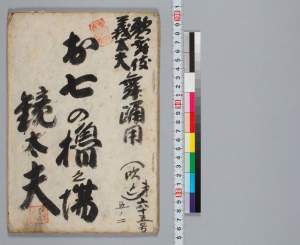 歌舞伎
義太夫
舞踊用
お七の櫓之場
鏡太夫
第六十五号
五ノ二